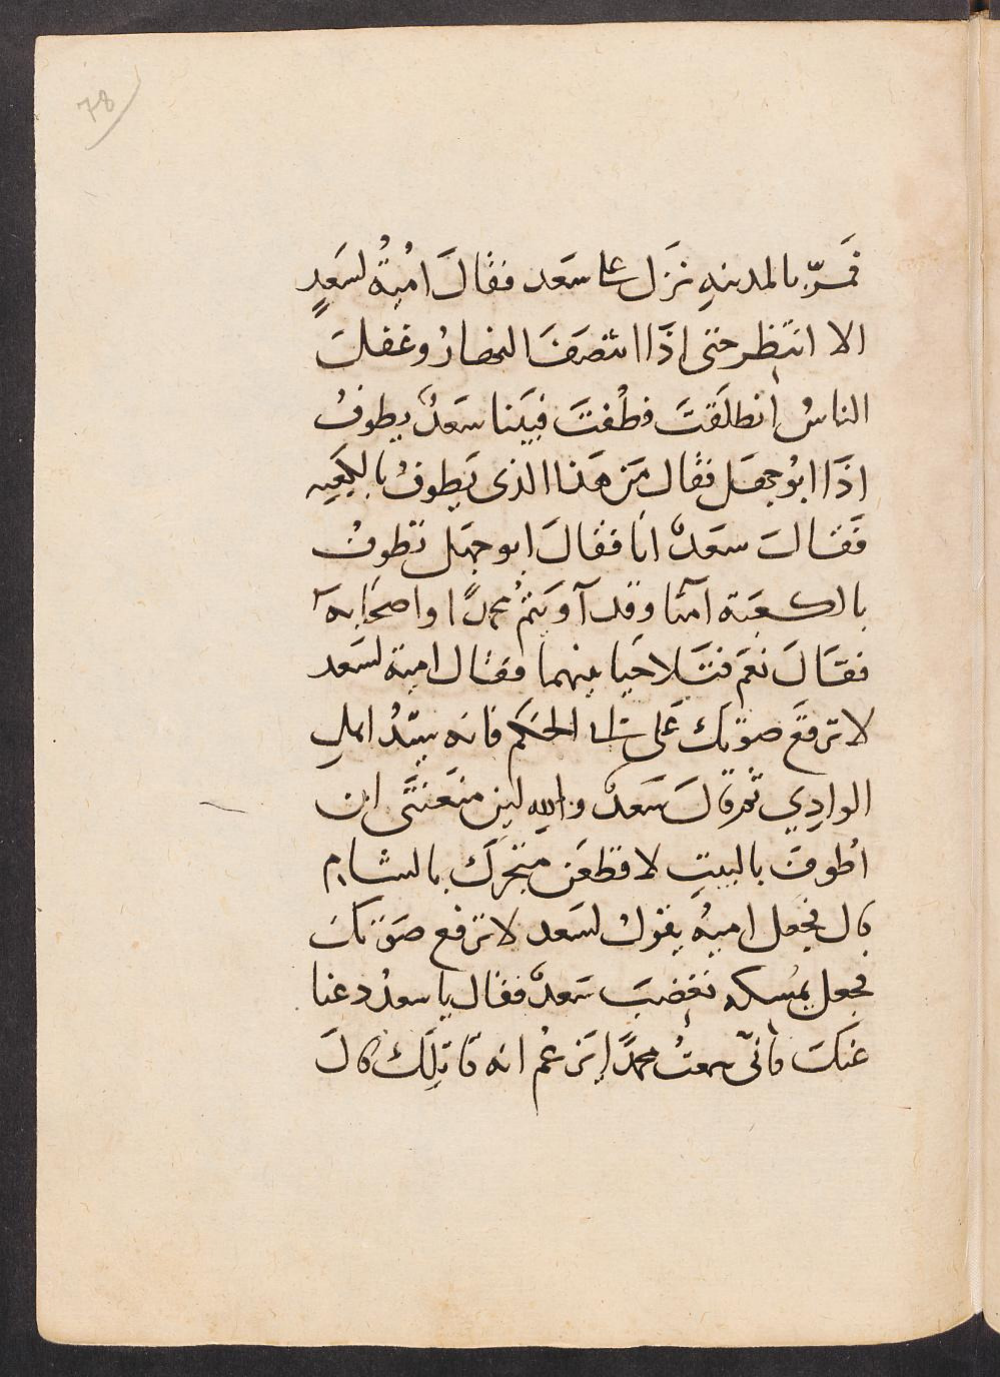 78
فَمرّ بالمدينهِ نزَل على سَعد فقالَ اميةُ لسَعدٍ
الا انتظر حتى اذَا انتصَفَ النهارُ وغفلتَ
الناسُ انطلَقتَ فطُفتَ فبَينا سَعدٌ يطوفُ
اذَا ابُو جهَل فقال مَن هَذا الذى يَطوفُ بالكعَبه
فَقالتَ سعَدٌ انَا فقالَ ابو جهَل تَطوفُ
بالكعبَة آمنًا وقد آوَيتمُ محمدًا واصحَابهَ
فقَالَ نعَم فتَلاحَيا بينهما فقال امية لسَعد
لا ترفعَ صوَتكَ عَلى الحَكَم فانه سيّدُ اهلِ
الوادِي ثم قالَ سَعدٌ واللهِ لينِ منَعتنَى ان
اطُوفَ بالبيتِ لاقطعَن مَتجرَكَ بالشام
قال فجعل اميةُ يقول لسَعد لا ترفع صَوَتكَ
فجعل يمُسكه فغَضِبَ سَعدٌ فقال يا سعدُ دعنا
عَنكَ فانىّ سمعتُ محمدًا يَزعُم انه قَاتِلكَ قالَ